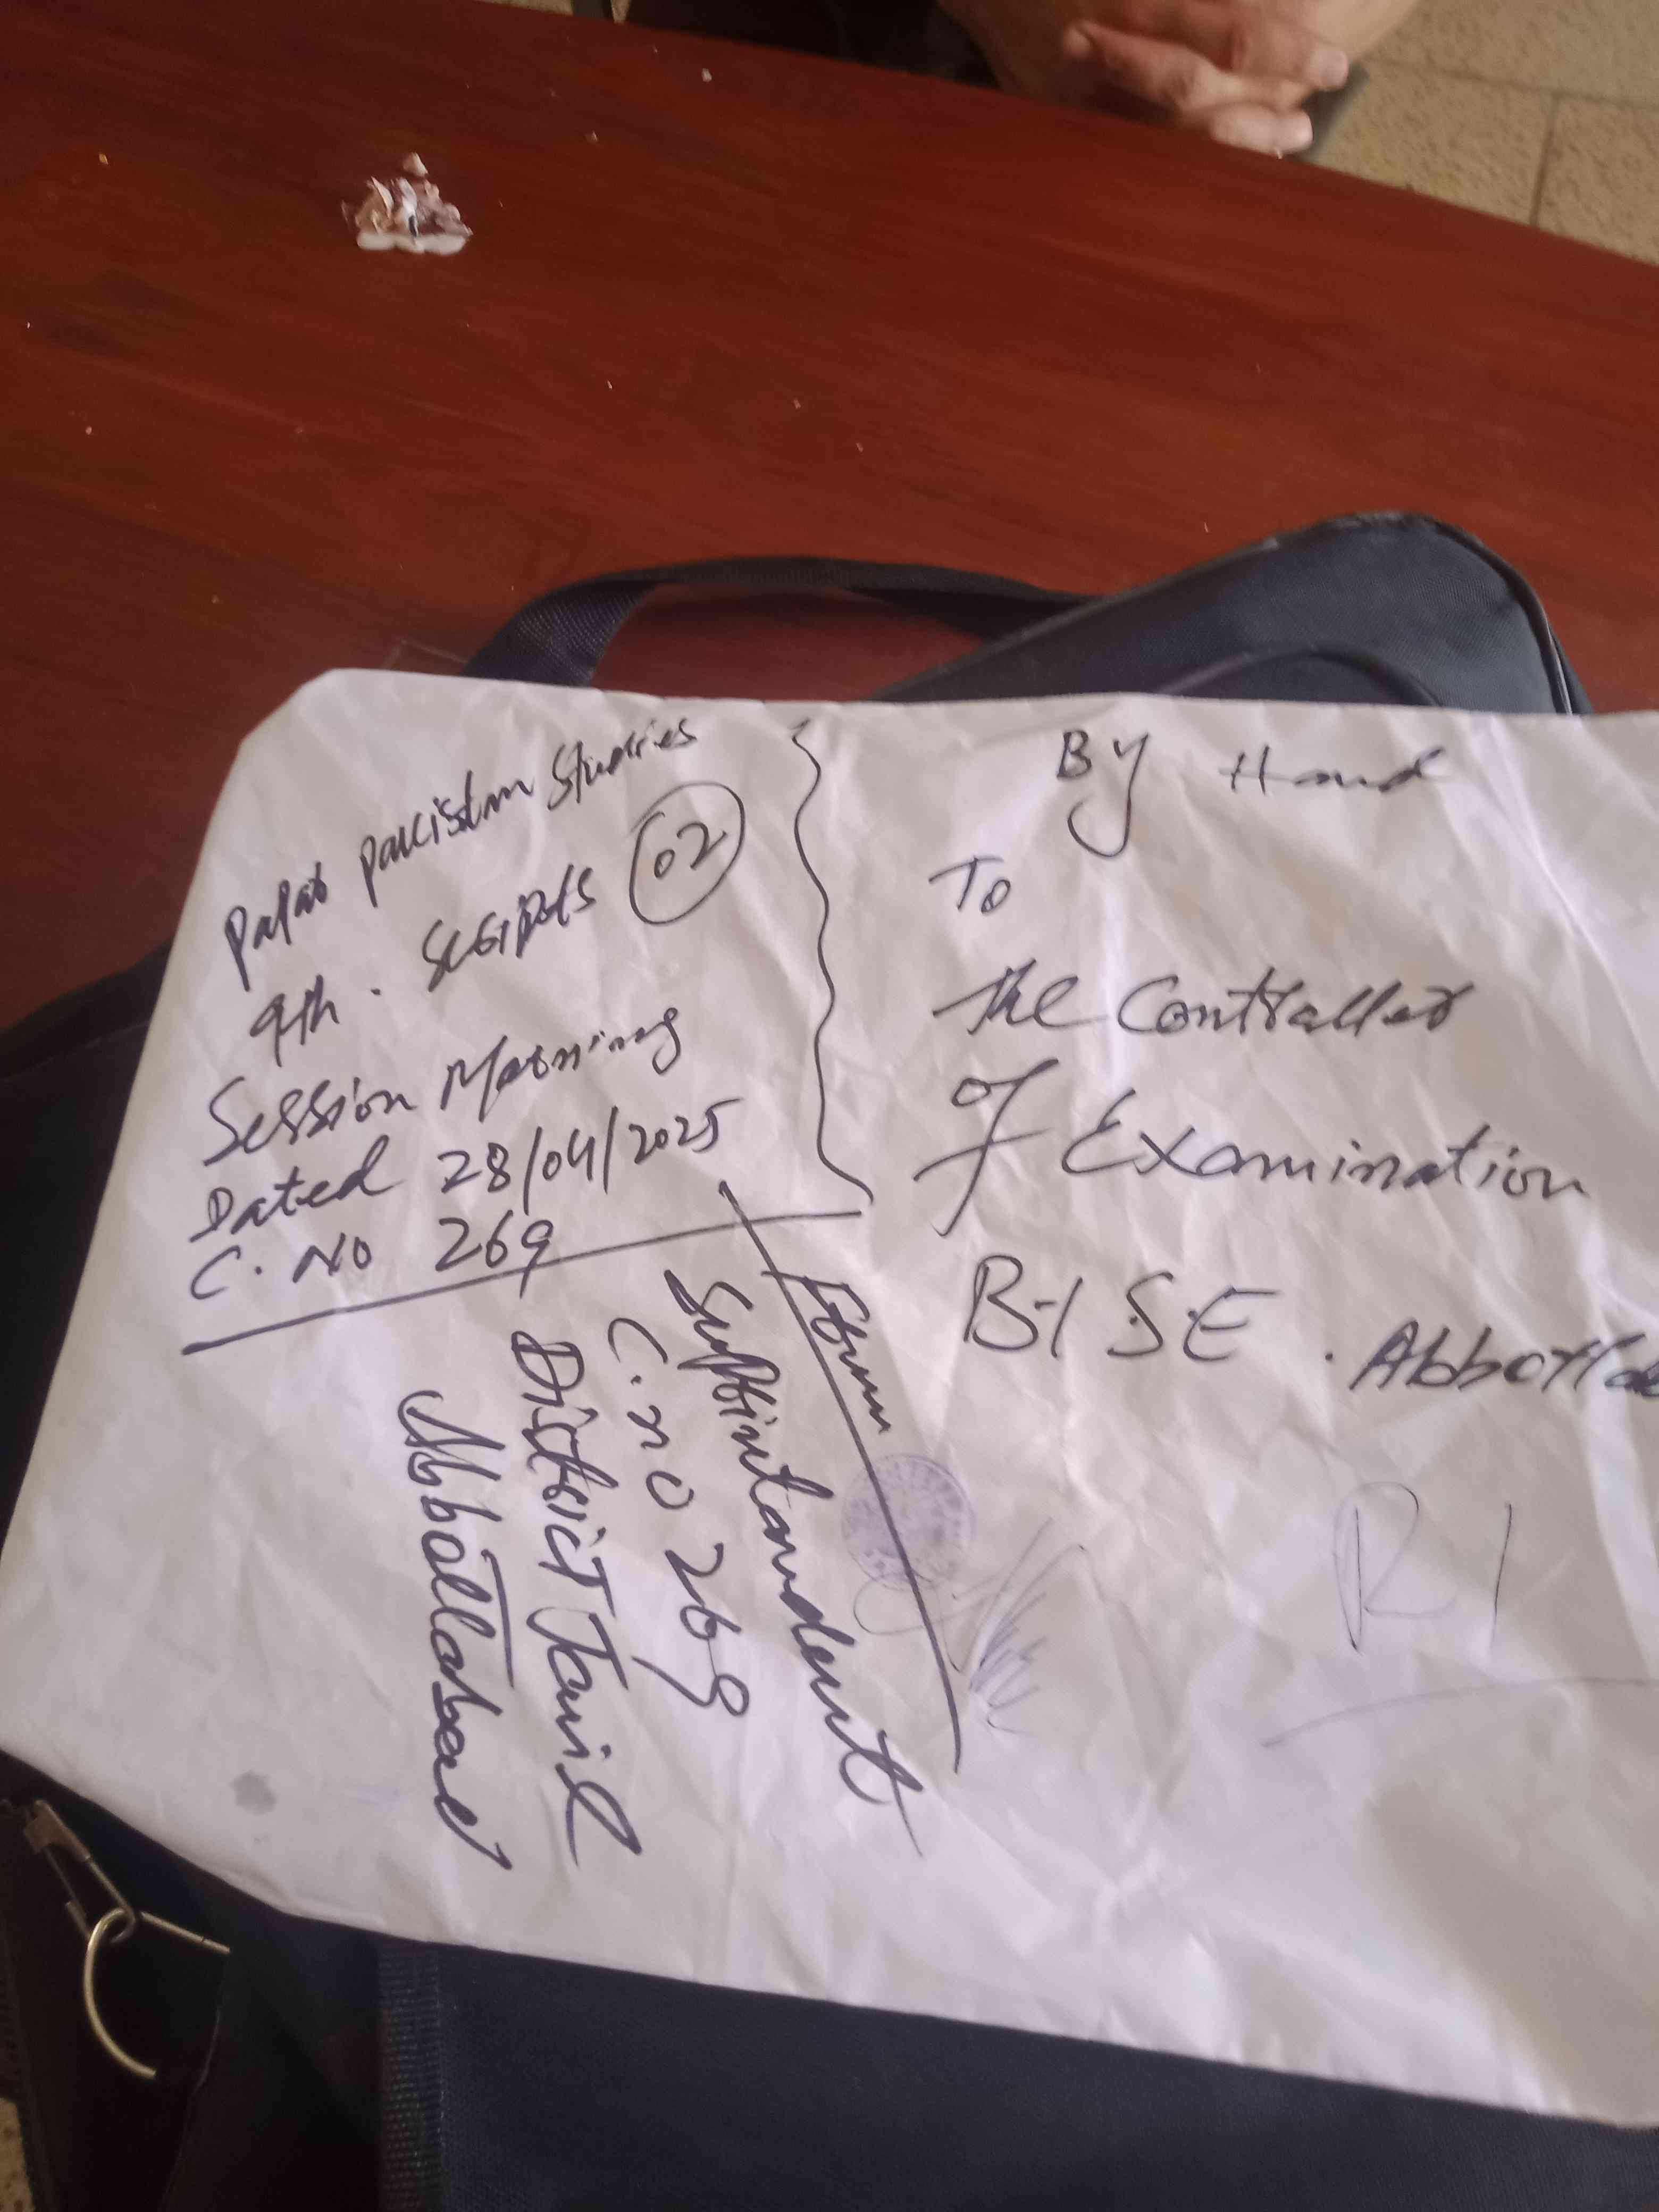 By Hand
To
The Controller
of Examination
B.I.S.E. Abbottab
Pakistan Studies
9th. Scripts 02
Session Morning
Dated 28/04/2025
C. No 269
From
Suprintandent
C. no 269
District Jail
Abbottabad